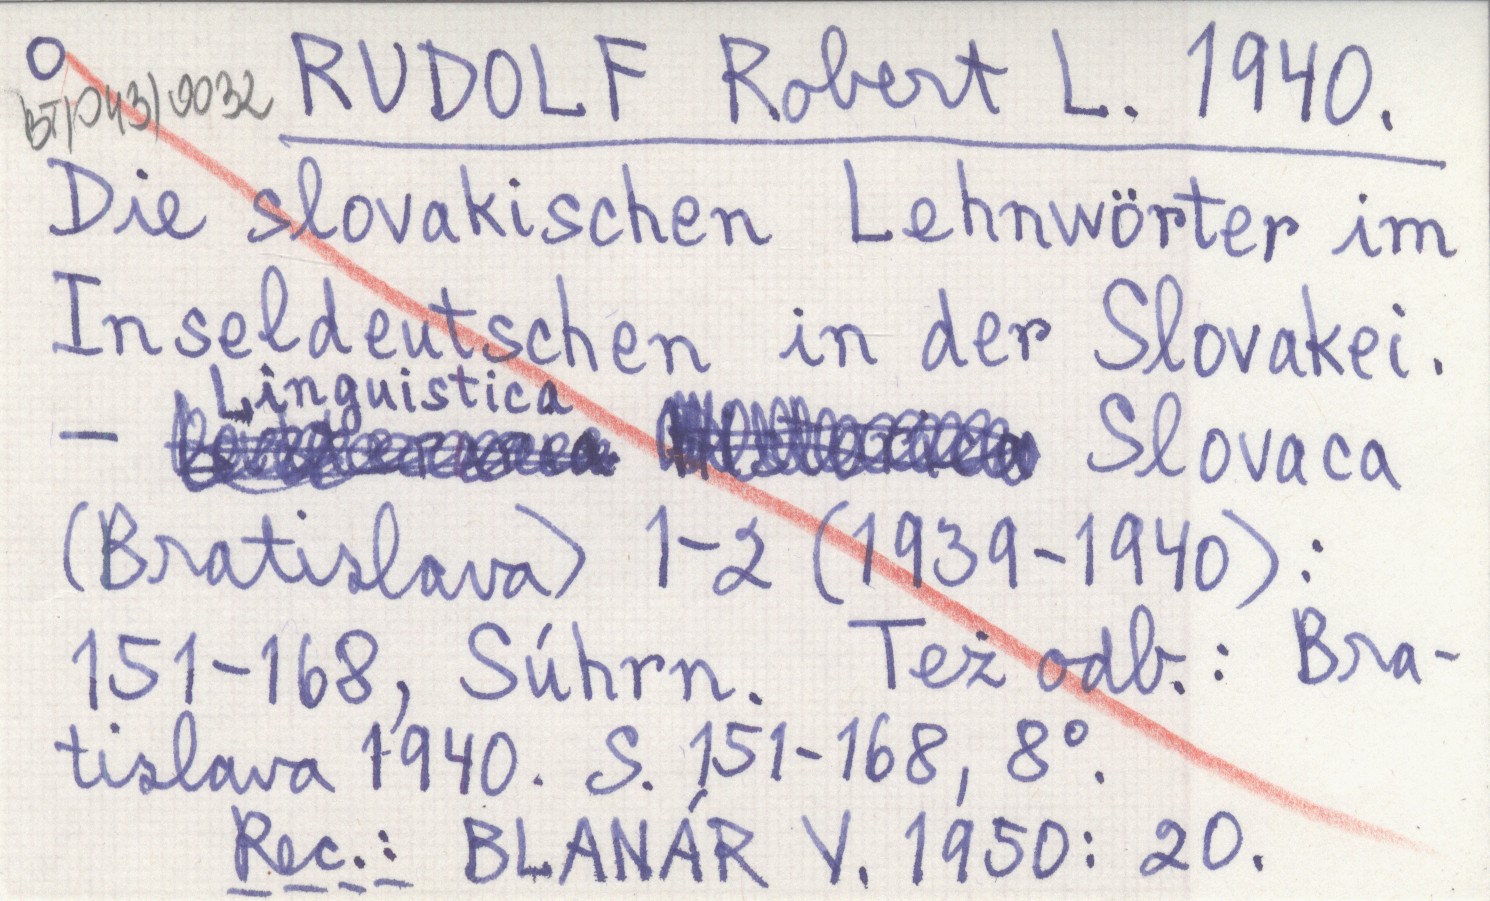 O RUDOLF Robert L. 1940.
BT/043/0032
Die slovakischen Lehnwörter im
Inseldeutschen in der Slovakei.
Linguistica
- Slovaca
(Bratislava) 1-2 (1939-1940):
151-168, Súhrn. Tež odb.: Bra-
tislava 1940. S. 151-168, 8°.
Rec.: BLANÁR V. 1950: 20.